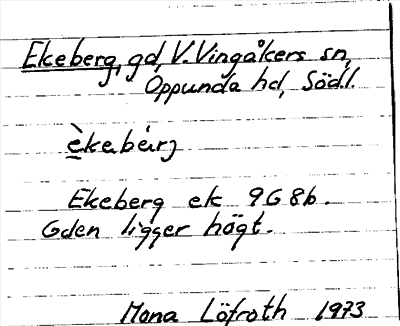 Ekeberg, gd, V. Vingåkers sn,
Oppunda hd, Södl.
èkebärj
Ekeberg ek 9G 8b.
Gden ligger högt.
Mona Löfroth 1973